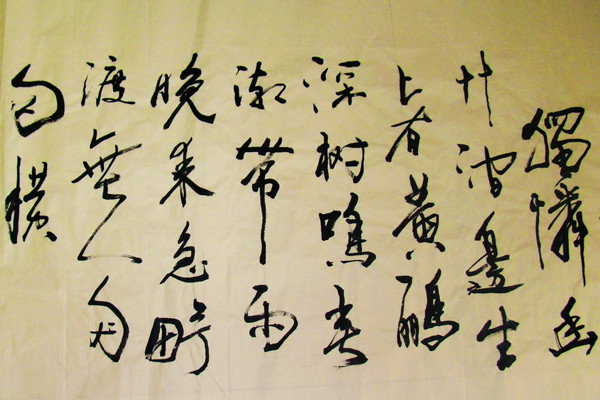 獨憐幽
艸澗邊生
上有黄鸝
深树鳴春
潮帶雨
晚来急野
渡無人舟
自横